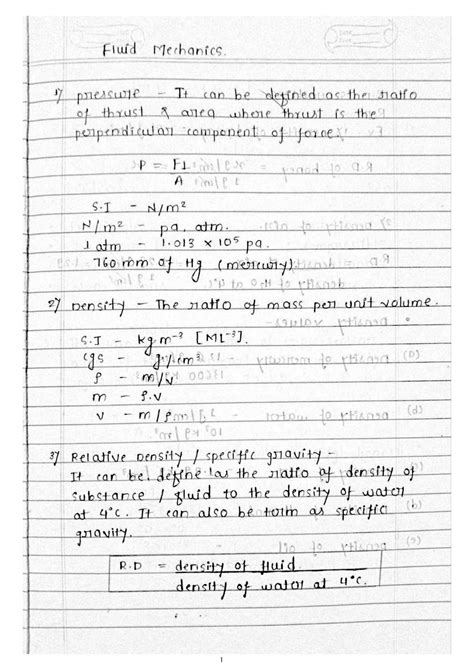 Fluid Mechanics.
1) pressure - It can be defined as the ratio
of thrust & area where thrust is the
perpendicular component of force.
P = F⊥
A
S.I - N/m²
N/m² - pa, atm.
1 atm - 1.013 × 10⁵ pa.
760 mm of Hg (mercury)
2) Density - The ratio of mass per unit volume.
S.I - kg m⁻³ [ML⁻³].
cgs - g/cm³
ρ - m/v
m - ρ.v
v - m/ρ
3) Relative Density / specific gravity -
It can be define as the ratio of density of
substance / fluid to the density of water
at 4°c. It can also be term as specific
gravity.
R.D = density of fluid
density of water at 4°c.
1